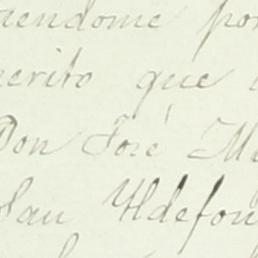 aendome por
merito que
Don José M
San Yldefon